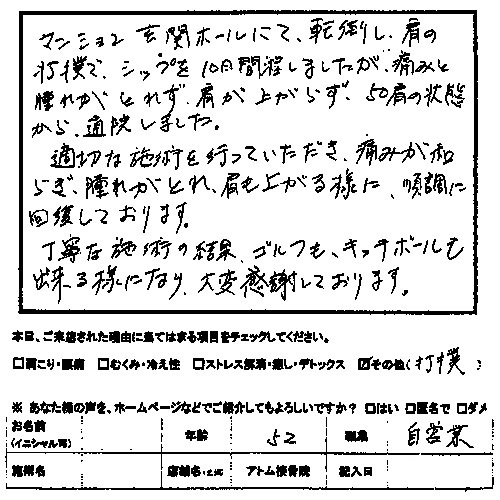 マンション玄関ホールにて、転倒し、肩の
打撲で、シップを10日間程しましたが、痛みと
腫れがとれず、肩が上がらず、50肩の状態
から、通院しました。
適切な施術を行っていただき、痛みが和
らぎ、腫れがとれ、肩も上がる様に、順調に
回復しております。
丁寧な施術の結果、ゴルフも、キャッチボールも
出来る様になり、大変感謝しております。
本日、ご来店された理由に当てはまる項目をチェックしてください。
□肩こり・腰痛 □むくみ・冷え性 □ストレス解消・癒し・デトックス ☑その他(打撲)
※ あなた様の声を、ホームページなどでご紹介してもよろしいですか? □はい □匿名で □ダメ
お名前 年齢 52 職業 自営業
(イニシャル可)
施術名 店舗名 アトム接骨院 記入日